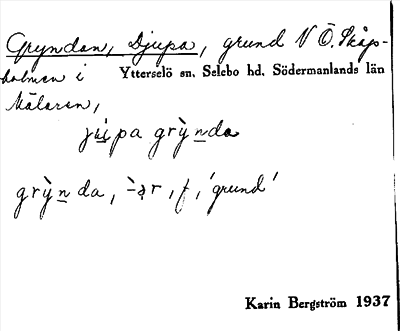 Gryndan, Djupa, grund N Ö. Skåp-
holmen i Ytterselö sn. Selebo hd. Södermanlands län
Mälaren,
jupa grỳnda
grỳnda, -̀ər, f, 'grund'
Karin Bergström 1937